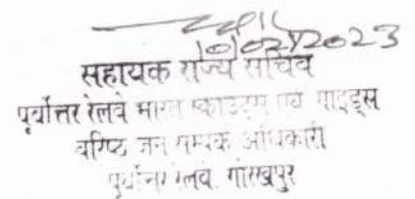 10/02/2023
सहायक राज्य सचिव
पूर्वोत्तर रेलवे भारत स्काउट्स एवं गाइड्स
वरिष्ठ जन सम्पर्क अधिकारी
पूर्वोत्तर रेलवे, गोरखपुर